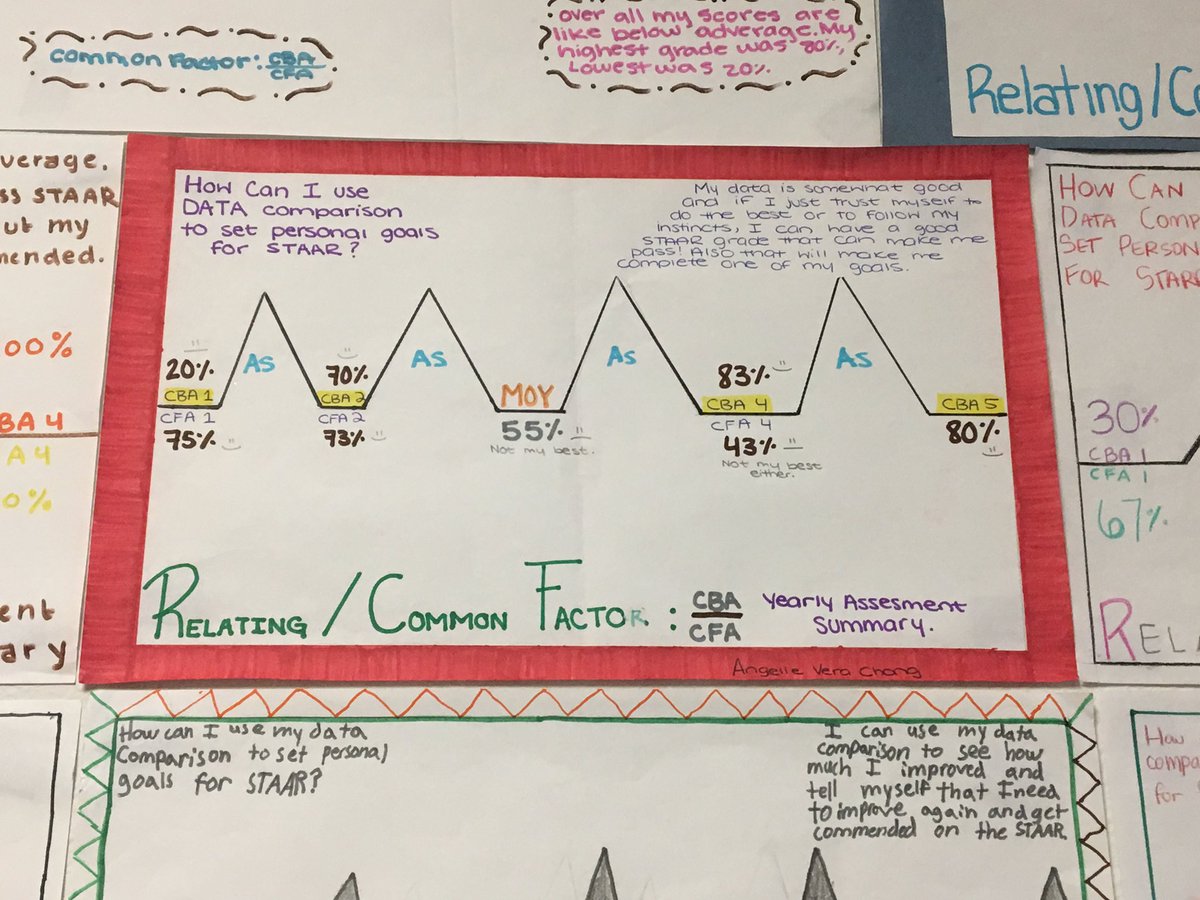 common Factor: CBA
CFA
over all my scores are
like below adverage. My
highest grade was 80%,
Lowest was 20%.
Relating/Co
verage.
ss STAAR
ut my
mended.
00%
BA 4
A 4
0%
ent
ary
How Can I use
DATA comparison
to set personal goals
for STAAR?
My data is somewhat good
and if I just trust myself to
do the best or to follow my
instincts, I can have a good
STAAR grade that can make me
pass! Also that will make me
complete one of my goals.
20%
CBA 1
CFA 1
75%
As
70%
CBA 2
CFA 2
73%
As
MOY
55%
Not my best.
As
83%
CBA 4
CFA 4
43%
Not my best
either.
As
CBA 5
80%
Relating / Common Factor : CBA
CFA
Yearly Assesment
Summary.
Angelie Vera Chong
How Can
Data Comp
Set Person
For STARR
30%
CBA 1
CFA 1
67%
REL
How can I use my data
Comparison to set personal
goals for STAAR?
I can use my data
comparison to see how
much I improved and
tell myself that I need
to improve again and get
commended on the STAAR.
How
compa
for